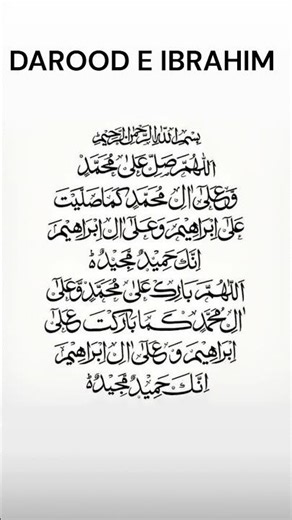 DAROOD E IBRAHIM
بسم الله الرحمن الرحيم
اَللّٰهُمَّ صَلِّ عَلٰى مُحَمَّدٍ
وَّعَلٰٓى اٰلِ مُحَمَّدٍ كَمَا صَلَّيْتَ
عَلٰٓى اِبْرَاهِيْمَ وَعَلٰٓى اٰلِ اِبْرَاهِيْمَ
اِنَّكَ حَمِيْدٌ مَّجِيْدٌ ۃ
اَللّٰهُمَّ بَارِكْ عَلٰى مُحَمَّدٍ وَّعَلٰٓى
اٰلِ مُحَمَّدٍ كَمَا بَارَكْتَ عَلٰٓى
اِبْرَاهِيْمَ وَعَلٰٓى اٰلِ اِبْرَاهِيْمَ
اِنَّكَ حَمِيْدٌ مَّجِيْدٌ ۃ